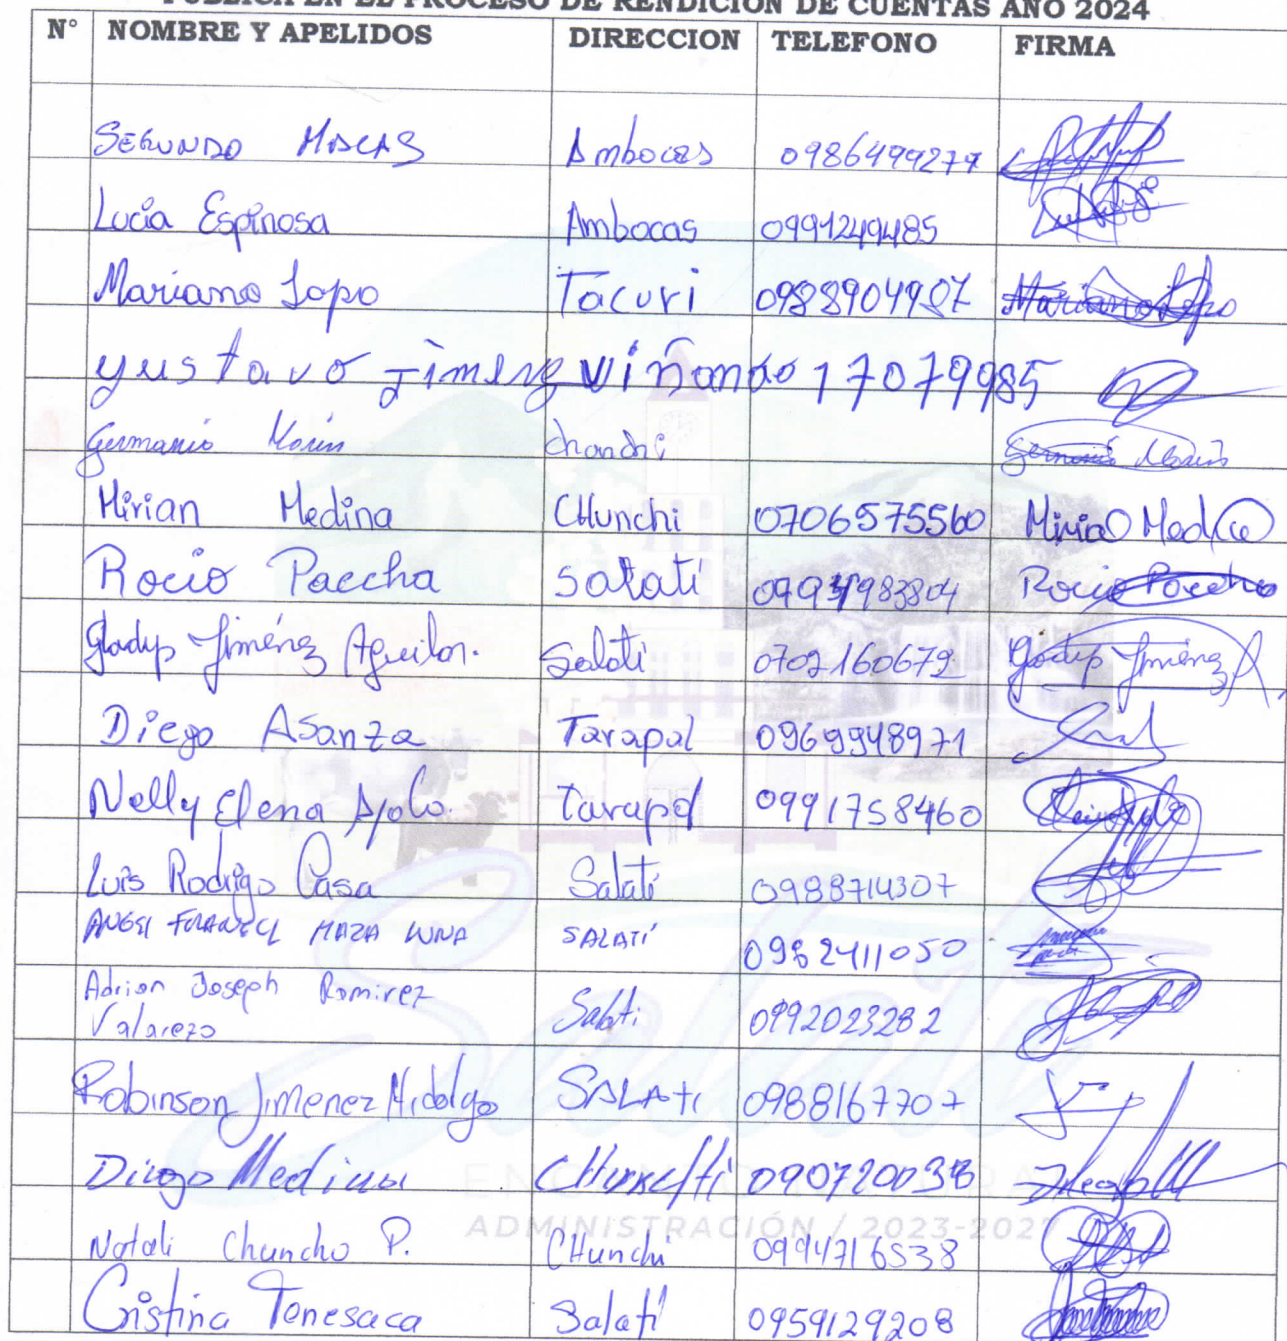 PUBLICA EN EL PROCESO DE RENDICION DE CUENTAS AÑO 2024
N° NOMBRE Y APELIDOS DIRECCION TELEFONO FIRMA
SEGUNDO MACAS Ambocas 0986499277
Lucia Espinosa Ambocas 0991249485
Mariano Lapo Tacuri 0988904987 Mariano Lapo
yustavo Jimenez viñando 17079985
Germanio Morin chanchi
Mirian Medina CHunchi 0706575560
Rocio Paccha salati Rocio Paccha
Gladys Jiménez Aguilar. Salati 0702160679 Gladys Jiménez A
Diego Asanza Tarapal 0969948971
Nelly Elena Ajola. tarapal 0991758460
Luis Rodrigo Casa Salati 0988714307
ANGEL MAZA LUNA SALATI 0982411050
Adrian Joseph Ramirez
Valarezo Salati 0992023282
Robinson Jimenez Hidalgo SALAti 0988167707
Diego Medina CHunchi
Natali Chuncho P. CHunchi 0994716538
Cristina Tenesaca Salati 0959129208
Salati
ADMINISTRACIÓN / 2023-2027